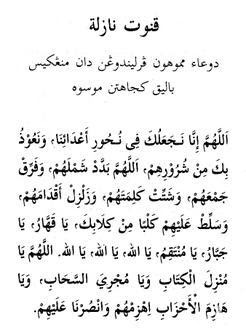 قنوت نازلة
دوعاء مموهون ڤرليندوڠن دان منڠکيس
باليق کجاهتن موسوه
اَللَّهُمَّ إِنَّا نَجْعَلُكَ فِي نُحُورِ أَعْدَائِنَا، وَنَعُوْذُ
بِكَ مِنْ شُرُوْرِهِمْ، اَللَّهُمَّ بَدِّدْ شَمْلَهُمْ، وَفَرِّقْ
جَمْعَهُمْ، وَشَتِّتْ كَلِمَتَهُمْ، وَزَلْزِلْ أَقْدَامَهُمْ،
وَسَلِّطْ عَلَيْهِمْ كَلْبًا مِنْ كِلَابِكَ، يَا قَهَّارُ، يَا
جَبَّارُ، يَا مُنْتَقِمُ، يَا الله، يَا الله، يَا الله. اَللَّهُمَّ يَا
مُنْزِلَ الْكِتَابِ وَيَا مُجْرِيَ السَّحَابِ، وَيَا
هَازِمَ الْأَحْزَابِ اِهْزِمْهُمْ وَانْصُرْنَا عَلَيْهِمْ.